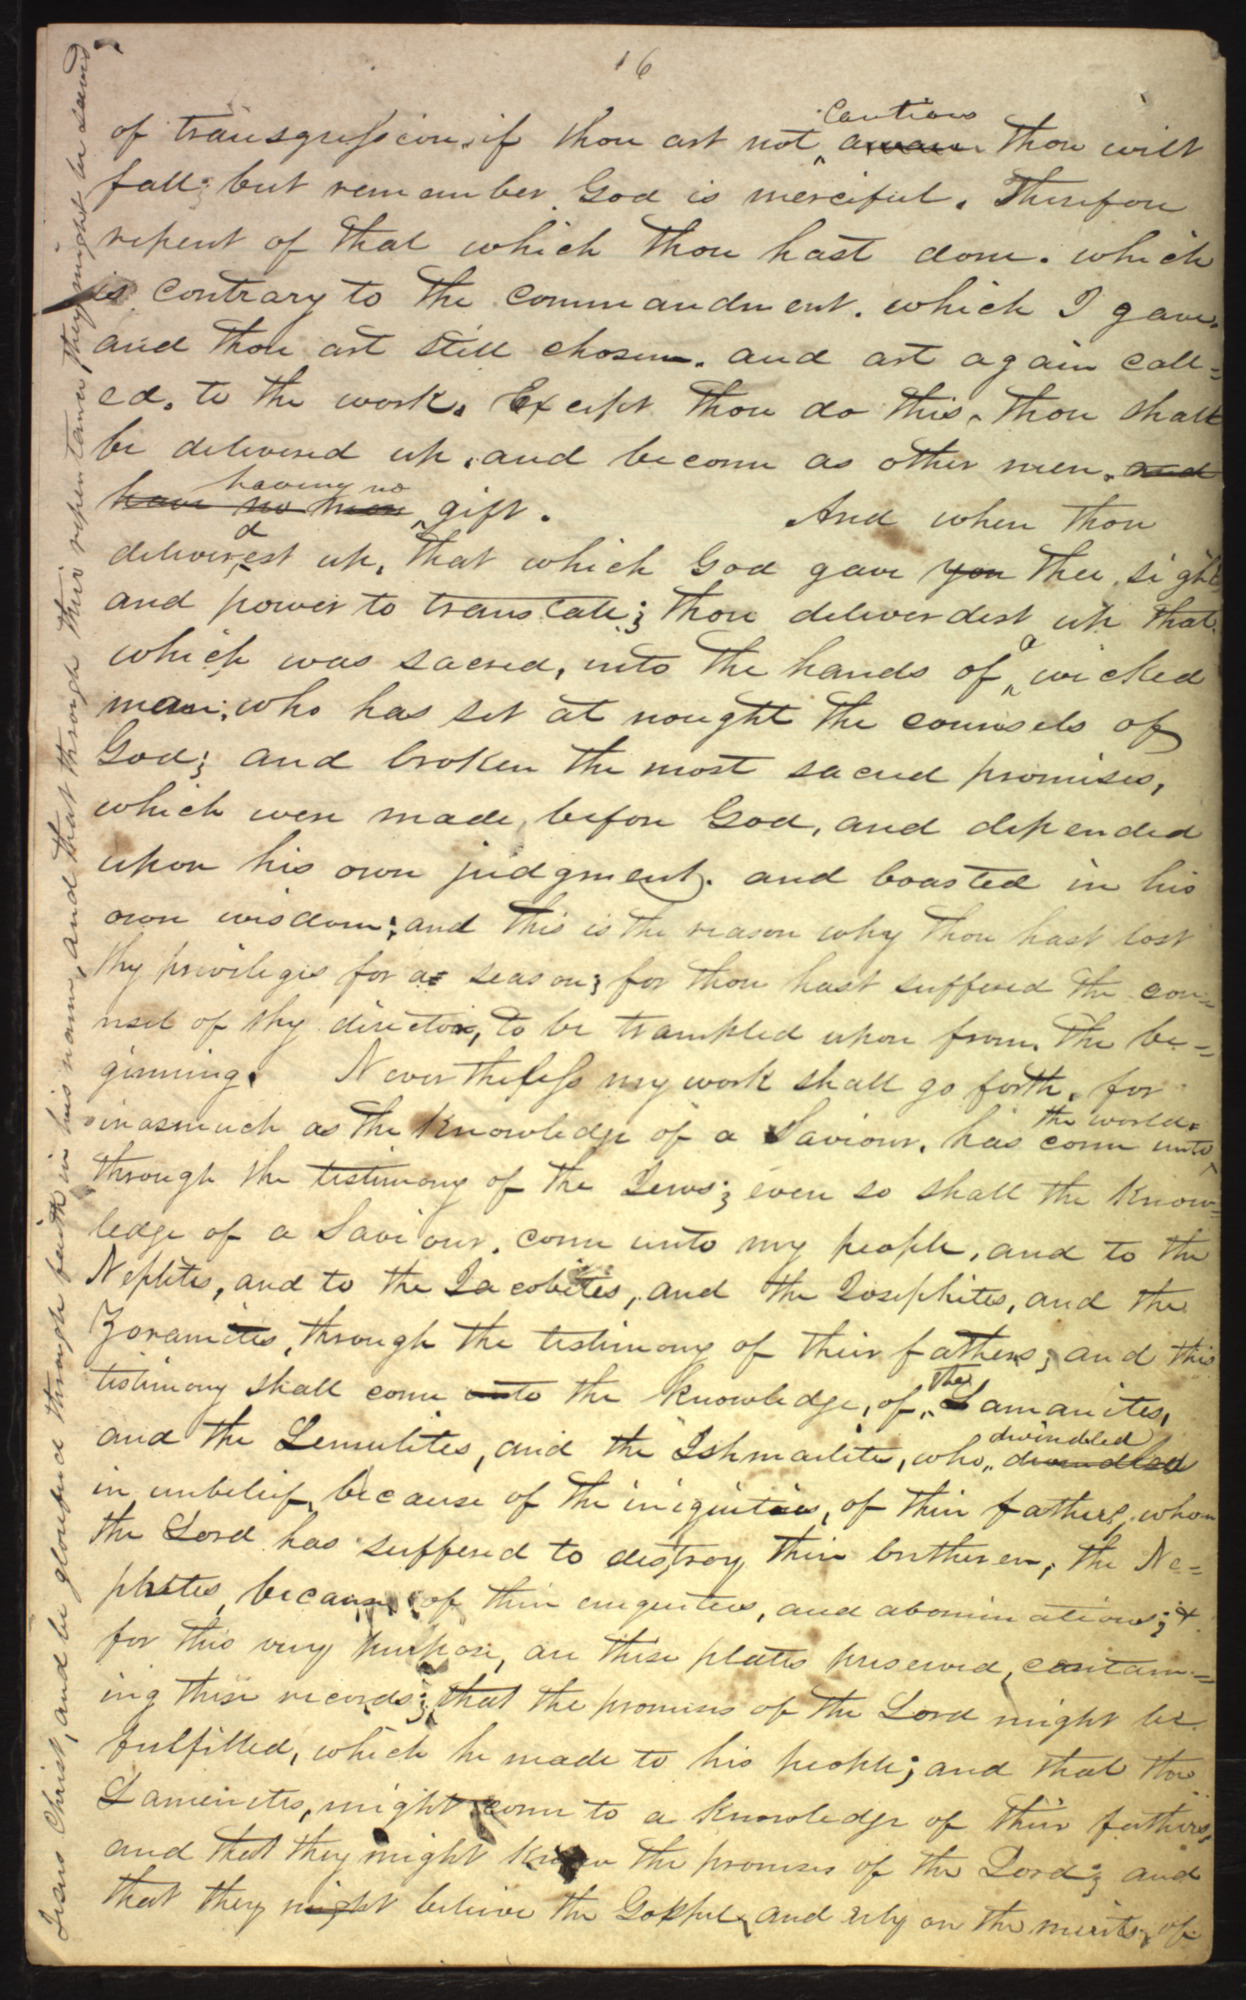 16
cautious
of transgression, if thou art not aware thou wilt
fall; but remember God is merciful. Therefore
repent of that which thou hast done. which
is contrary to the commandment. which I gave.
and thou art still chosen. and art again call=
ed. to the work. Except thou do this, thou shalt
be delivered up. and become as other men. and
having no
have no more gift. And when thou
d
deliverest up, that which God gave you thee, sight
and power to translate; thou deliverdest up that
a
which was sacred, into the hands of wicked
man; who has set at nought the counsels of
God; and broken the most sacred promises,
which were made, before God, and depended
upon his own judgment. and boasted in his
own wisdom; and this is the reason why thou hast lost
thy privileges for a season; for thou hast suffered the cou=
nsel of thy director, to be trampled upon from. the be=
ginning. Nevertheless my work shall go forth, for
the world.
inasmuch as the knowledge of a Saviour, has come unto
through the testimony of the Jews; even so shall the know=
ledge of a Saviour, come unto my people, and to the
Nephites, and to the Jacobites, and the Josephites, and the
Zoramites, through the testimony of their fathers; and this
the
testimony shall come unto the knowledge, of, Lamanites,
dwindled
and the Lemulites, and the Ishmaelites, who dwindled
in unbelief, because of the iniquities, of their fathers, whom
the Lord has suffered to destroy their brutheren, the Ne=
phites, because of their eniquities, and abominations; &
for this very purpose, are these plates preserved, contain=
ing these records; that the promises of the Lord might be
fulfilled, which he made to his people; and that the
Lamenites, might come to a knowledge of their fathers,
and that they might know the promises of the Lord; and
that they might believe the Gospel, and rely on the merits, of
Jesus Christ, and be glorified through faith in his name, and that through their repentance they might be saved